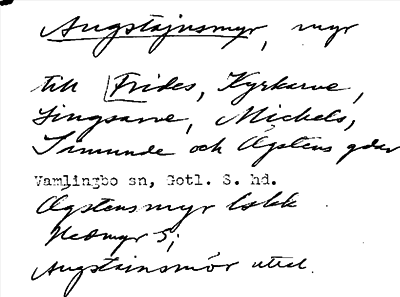 Augstäjnsmyr, myr
till Frides, Kyrkarve,
Lingsarve, Michels,
Simunde och Ägstens gdar
Vamlingbo sn, Gotl. S. hd.
Ägstensmyr
Nedmyr 5;
Augstainsmör uttal.